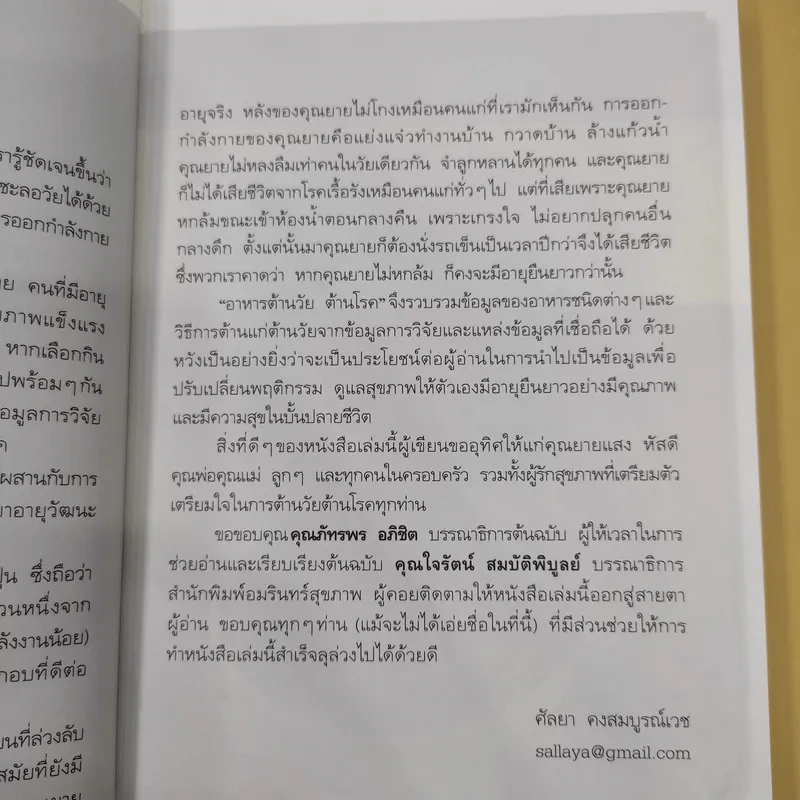 ารู้ชัดเจนขึ้นว่า
ชะลอวัยได้ด้วย
รออกกำลังกาย
ย คนที่มีอายุ
ภาพแข็งแรง
หากเลือกกิน
ปพร้อมๆกัน
้อมูลการวิจัย
ค
ผสานกับการ
าอายุวัฒนะ
ปุ่น ซึ่งถือว่า
วนหนึ่งจาก
ลังงานน้อย)
กอบที่ดีต่อ
ยนที่ล่วงลับ
สมัยที่ยังมี
อายุจริง หลังของคุณยายไม่โกงเหมือนคนแก่ที่เรามักเห็นกัน การออก-
กำลังกายของคุณยายคือแย่งแจ๋วทำงานบ้าน กวาดบ้าน ล้างแก้วน้ำ
คุณยายไม่หลงลืมเท่าคนในวัยเดียวกัน จำลูกหลานได้ทุกคน และคุณยาย
ก็ไม่ได้เสียชีวิตจากโรคเรื้อรังเหมือนคนแก่ทั่วๆไป แต่ที่เสียเพราะคุณยาย
หกล้มขณะเข้าห้องน้ำตอนกลางคืน เพราะเกรงใจ ไม่อยากปลุกคนอื่น
กลางดึก ตั้งแต่นั้นมาคุณยายก็ต้องนั่งรถเข็นเป็นเวลาปีกว่าจึงได้เสียชีวิต
ซึ่งพวกเราคาดว่า หากคุณยายไม่หกล้ม ก็คงจะมีอายุยืนยาวกว่านั้น
“อาหารต้านวัย ต้านโรค” จึงรวบรวมข้อมูลของอาหารชนิดต่างๆและ
วิธีการต้านแก่ต้านวัยจากข้อมูลการวิจัยและแหล่งข้อมูลที่เชื่อถือได้ ด้วย
หวังเป็นอย่างยิ่งว่าจะเป็นประโยชน์ต่อผู้อ่านในการนำไปเป็นข้อมูลเพื่อ
ปรับเปลี่ยนพฤติกรรม ดูแลสุขภาพให้ตัวเองมีอายุยืนยาวอย่างมีคุณภาพ
และมีความสุขในบั้นปลายชีวิต
สิ่งที่ดีๆของหนังสือเล่มนี้ผู้เขียนขออุทิศให้แก่คุณยายแสง หัสดี
คุณพ่อคุณแม่ ลูกๆ และทุกคนในครอบครัว รวมทั้งผู้รักสุขภาพที่เตรียมตัว
เตรียมใจในการต้านวัยต้านโรคทุกท่าน
ขอขอบคุณคุณภัทรพร อภิชิต บรรณาธิการต้นฉบับ ผู้ให้เวลาในการ
ช่วยอ่านและเรียบเรียงต้นฉบับ คุณใจรัตน์ สมบัติพิบูลย์ บรรณาธิการ
สำนักพิมพ์อมรินทร์สุขภาพ ผู้คอยติดตามให้หนังสือเล่มนี้ออกสู่สายตา
ผู้อ่าน ขอบคุณทุกๆท่าน (แม้จะไม่ได้เอ่ยชื่อในที่นี้) ที่มีส่วนช่วยให้การ
ทำหนังสือเล่มนี้สำเร็จลุล่วงไปได้ด้วยดี
ศัลยา คงสมบูรณ์เวช
sallaya@gmail.com